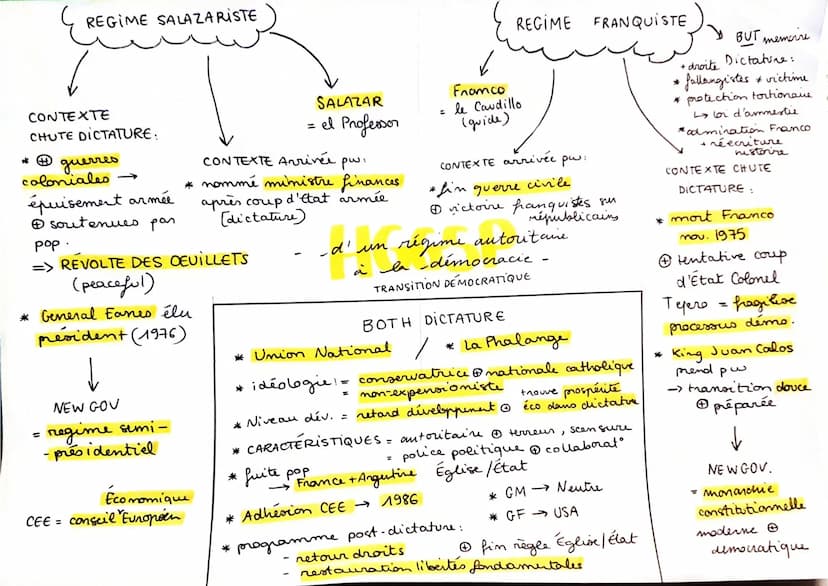 REGIME SALAZARISTE
SALAZAR
= el Professor
CONTEXTE
CHUTE DICTATURE:
* ⊕ guerres
coloniales →
épuisement armée
⊕ soutenues par
pop.
=> RÉVOLTE DES OEUILLETS
(peaceful)
* General Eanes élu
président (1976)
NEW GOV
= regime semi-
- présidentiel
CONTEXTE Arrivée pw:
* nommé ministre finances
après coup d'état armée
[dictature)
REGIME FRANQUISTE
Franco
= le Caudillo
(guide)
CONTEXTE arrivée pw:
* fin guerre civile
⊕ victoire franquistes sur
républicains
BUT memoire
+ droite Dictature:
* fallangistes ≠ victime
* protection tortionaire
↳ loi d'amnestie
* admiration Franco
+ réecriture
histoire
CONTEXTE CHUTE
DICTATURE:
* mort Franco
nov. 1975
⊕ tentative coup
d'État Colonel
Tejero = fragilise
processus démo.
* King Juan Calos
prend pw
→ transition douce
⊕ préparée
NEW GOV.
= monarchie
constitutionnelle
moderne ⊕
démocratique
HGGSP
- - d'un régime autoritaire
à la démocracie -
TRANSITION DÉMOCRATIQUE
BOTH DICTATURE
* Union National / * La Phalange
* idéologie = conservatrice ⊕ nationale catholique
= non-expensioniste
* Niveau dév. = retard développment ⊕ trouve prospérité
éco dans dictature
* CARACTÉRISTIQUES = autoritaire ⊕ terreur, scensure
= police politique ⊕ collaborat°
Église/État
* fuite pop
→ France + Argntine
* Adhésion CEE → 1986
* GM → Neutre
* GF → USA
* programme post-dictature:
- retour droits ⊕ fin règle Église/État
- restauration libertés fondamentales
Économique
CEE = conseil Européen